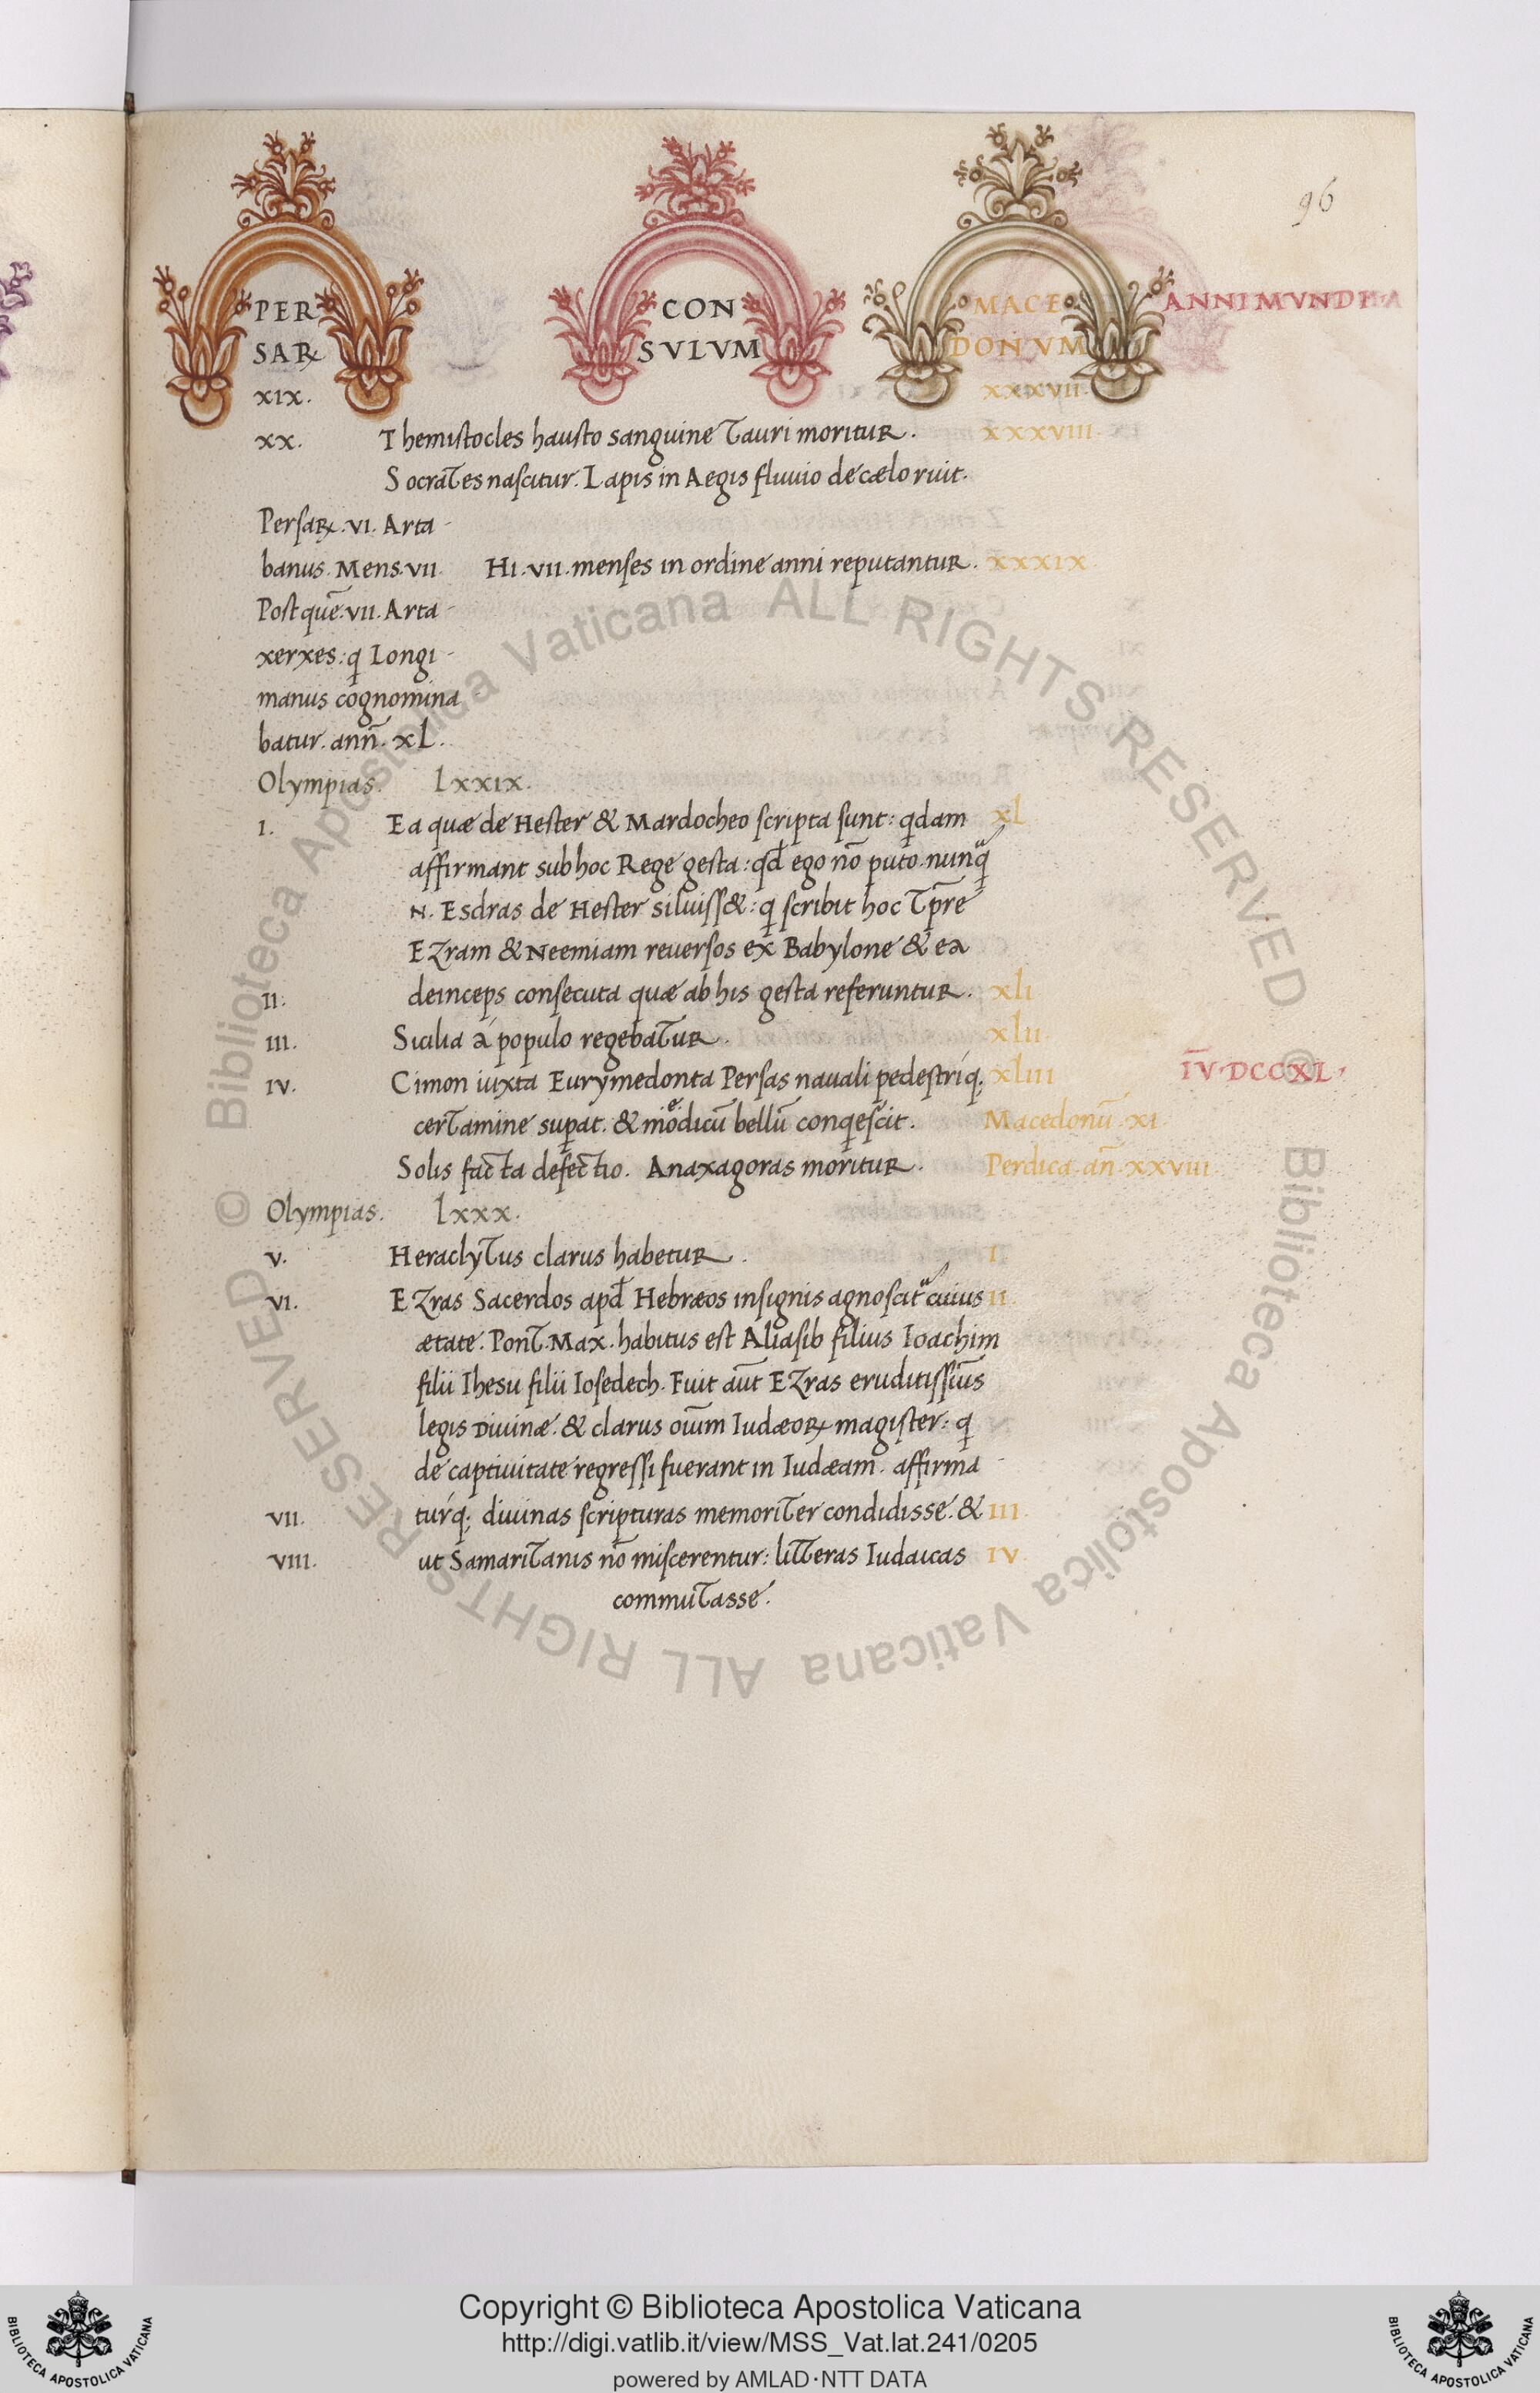 96
PER CON MACE ANNI MVNDI
SAR℞ SVLVM DONVM
XIX. XXXVII.
XX. Themistocles hausto sanguine Tauri moritur. XXXVIII.
Socrates nascitur. Lapis in Aegis fluuio de cælo ruit.
Persaꝝ. VI. Arta-
banus. Mens. VII. Hi. VII. menses in ordine anni reputantur. XXXIX.
Post quē. VII. Arta-
xerxes: q Longi-
manus cognomina
batur. ann̄. XL.
Olympias. lxxix.
I. Ea quæ de Hester & Mardocheo scripta sunt: qdam xl
affirmant sub hoc Rege gesta: qd ego nō puto. nunq̄
N. Esdras de Hester siluiss&: q scribit hoc Tp̄re
Ezram & Neemiam reuersos ex Babylone & ea
II. deinceps consecuta quæ ab his gesta referuntur. xli
III. Sicilia á populo regebatur. xlii
IV. Cimon iuxta Eurymedonta Persas nauali pedestríq; xliii I̅V̅·DCCXL·
certamine supat. & moedicū bellū conqescit. Macedonū. XI
Solis facta defectio. Anaxagoras moritur. Perdica. an̄. XXVIII
Olympias. lxxx.
V. Heraclytus clarus habetur. I
VI. Ezras Sacerdos apd Hebræos insignis agnoscit᷑ cuius II
ætate. Pont. Max. habitus est Aliasib filius Ioachim
filii Ihesu filii Iosedech. Fuit aūt Ezras eruditissim̄s
legis Diuinæ. & clarus oīum Iudæoꝝ magister: q
de captiuitate regressi fuerant in Iudæam. affirma-
VII. túrq; diuinas scripturas memoriter condidisse. & III.
VIII. ut Samaritanis nō miscerentur: litteras Iudaicas IV.
commutasse.
© Biblioteca Apostolica Vaticana ALL RIGHTS RESERVED
© Biblioteca Apostolica Vaticana ALL RIGHTS RESERVED
Copyright © Biblioteca Apostolica Vaticana
http://digi.vatlib.it/view/MSS_Vat.lat.241/0205
powered by AMLAD·NTT DATA
BIBLIOTECA APOSTOLICA VATICANA
BIBLIOTECA APOSTOLICA VATICANA